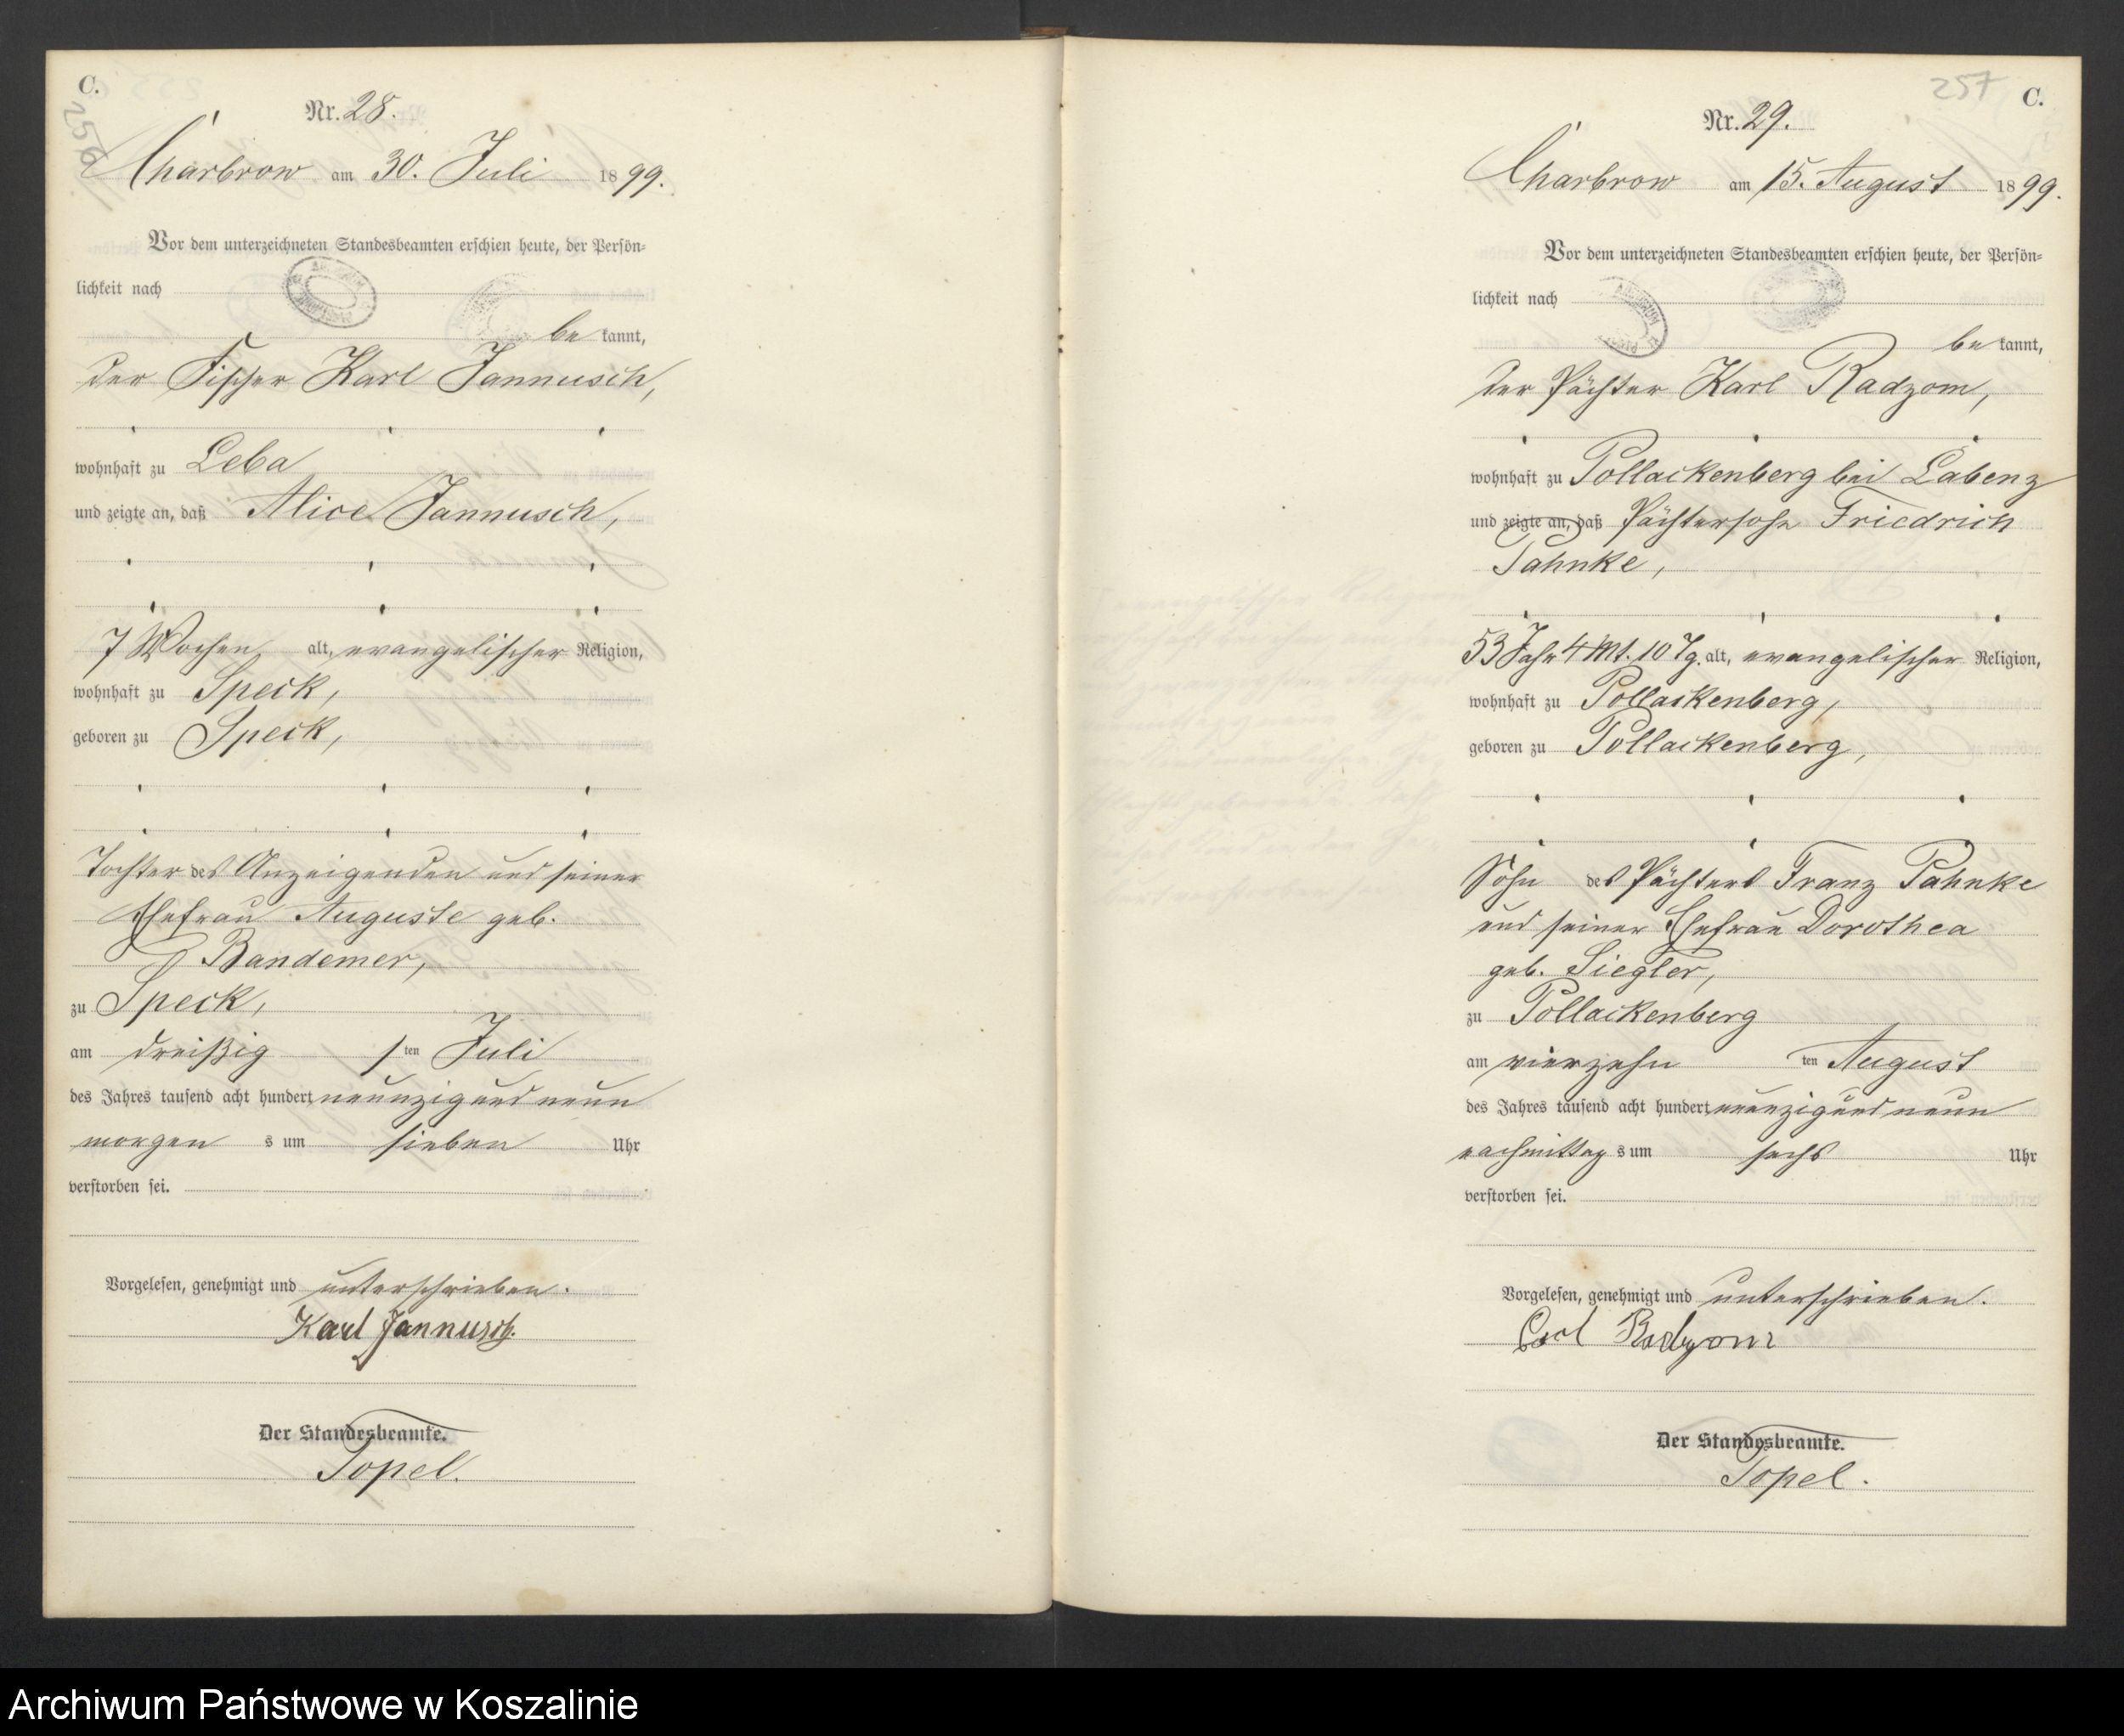 C.
256
Nr. 28.
Charbrow am 30. Juli 1899.
Vor dem unterzeichneten Standesbeamten erschien heute, der Persön-
lichkeit nach
be kannt,
der Fischer Karl Jannusch,
wohnhaft zu Leba
und zeigte an, daß Alice Jannusch,
7 Wochen alt, evangelischer Religion,
wohnhaft zu Speck,
geboren zu Speck,
Tochter des Anzeigenden und seiner
Ehefrau Auguste geb.
Bandemer,
zu Speck,
am dreißig sten Juli
des Jahres tausend acht hundert neunzig und neun
morgen s um sieben Uhr
verstorben sei.
Vorgelesen, genehmigt und unterschrieben.
Karl Jannusch.
Der Standesbeamte.
Topel.
257 C.
Nr. 29.
Charbrow am 15. August 1899.
Vor dem unterzeichneten Standesbeamten erschien heute, der Persön-
lichkeit nach
be kannt,
der Pächter Karl Radzom,
wohnhaft zu Pollackenberg bei Labenz
und zeigte an, daß Pächtersohn Friedrich
Pahnke,
53 Jahr 4 Mt. 10 Tg. alt, evangelischer Religion,
wohnhaft zu Pollackenberg,
geboren zu Pollackenberg,
Sohn des Pächters Franz Pahnke
und seiner Ehefrau Dorothea
geb. Siegler,
zu Pollackenberg
am vierzehn ten August
des Jahres tausend acht hundert neunzig und neun
nachmittag s um sechs Uhr
verstorben sei.
Vorgelesen, genehmigt und unterschrieben.
Carl Radzom
Der Standesbeamte.
Topel.
Archiwum Państwowe w Koszalinie